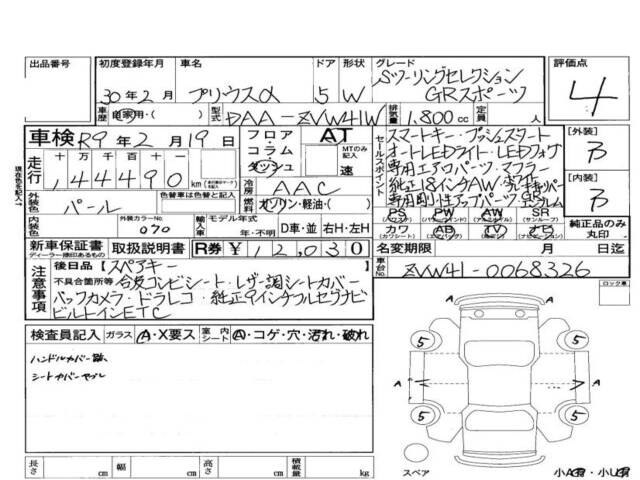 出品番号 初度登録年月 車名 ドア 形状 グレード 評価点
30年2月 プリウスα 5 W Sツーリングセレクション GRスポーツ 4
車歴 自家用・( ) 型式 DAA-ZVW41W 排気量 1,800cc 定員 人
車検 R9年2月19日 フロア・コラム・ダッシュ AT MTのみ記入 速
走行 十 万 千 百 十 一
144490 km
冷房 AAC
外装色 パール 色替車は色替と記入 燃料 ガソリン・軽油・( )
内装色 外装カラーNo. 070 輸入車 モデル年式 年・不明 D車・並 右H・左H
現在色を記入↑
セールスポイント
スマートキー・プッシュスタート
オートLEDライト・LEDフォグ
専用エアロパーツ・マフラー
純正18インチAW・ブレーキキャリパー
PS PW AW SR
カワ AB TV ナビ
[外装] B
[内装] B
純正品のみ丸印
新車保証書 取扱説明書 R券 ¥12,030
ディーラー捺印あるもの
名変期限 月 日迄
車台No. ZVW41-0068326
注意事項
後日品【スペアキー 】
不具合箇所等 合皮コンビシート・レザー調シートカバー
バックカメラ・ドラレコ・純正9インチフルセグナビ
ビルトインETC
ロック車
検査員記入 ガラス A・X要ス 室内シート A・コゲ・穴・汚れ・破れ
ハンドルカバー跡
シートカバーヤブレ
5 5
A A A
5 5
スペア 小A有・小U有
長さ cm 幅 cm 高さ cm 積載量 kg